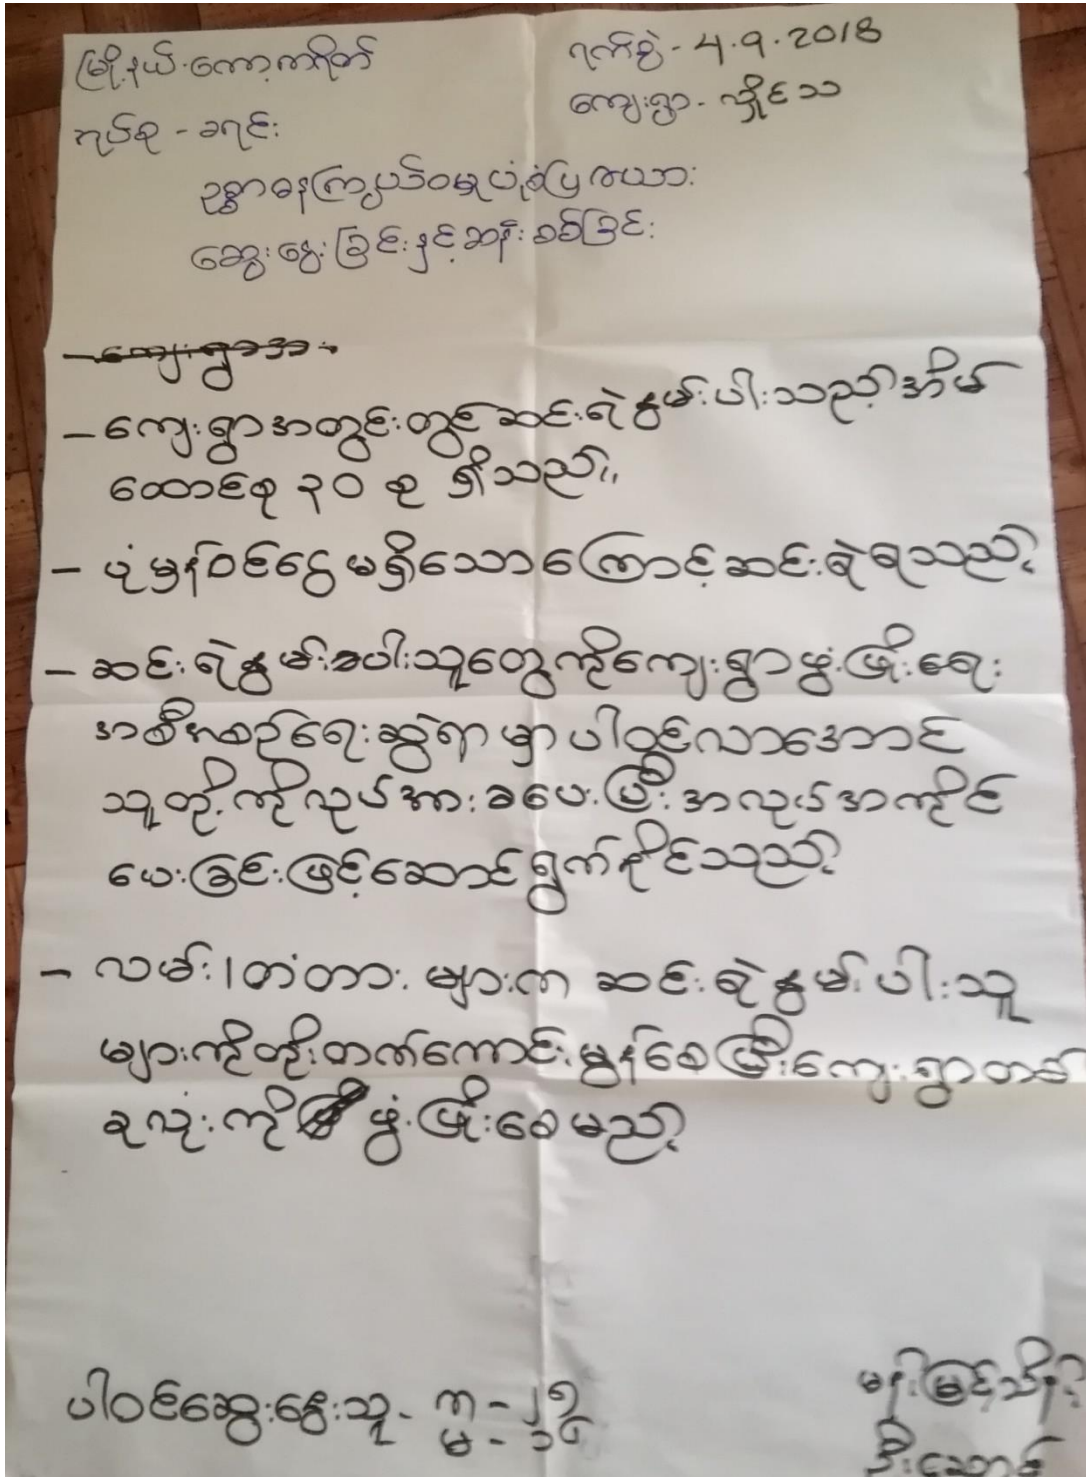 မြို့နယ်-ကော့ကရိတ် ရက်စွဲ - 4.9.2018
အုပ်စု - ခရင်း ကျေးရွာ - လှိုင်သ
ဥစ္စာဓနကြွယ်ဝမှုပုံစံပြဇယား
ဆွေးနွေးခြင်းနှင့်ဆန်းစစ်ခြင်း
- ကျေးရွာအ
- ကျေးရွာအတွင်းတွင်ဆင်းရဲနွမ်းပါးသည့်အိမ်
ထောင်စု ၃၀ စု ရှိသည်။
- ပုံမှန်ဝင်ငွေမရှိသောကြောင့်ဆင်းရဲရသည်။
- ဆင်းရဲနွမ်းပါးသူတွေကိုကျေးရွာဖွံ့ဖြိုးရေး
အစီအစဉ်ရေးဆွဲရာမှာပါဝင်လာအောင်
သူတို့ကိုလုပ်အားခပေးပြီးအလုပ်အကိုင်
ပေးခြင်းဖြင့်ဆောင်ရွက်နိုင်သည်။
- လမ်း၊တံတားများက ဆင်းရဲနွမ်းပါးသူ
များကိုတိုးတက်ကောင်းမွန်စေပြီးကျေးရွာတစ်
ခုလုံးကို ဖွံ့ဖြိုးစေမည်။
ပါဝင်ဆွေးနွေးသူ - ကျ - ၂၅ မန်းမြင့်သိန်း
မ - ၁၄ ဦးဆောင်